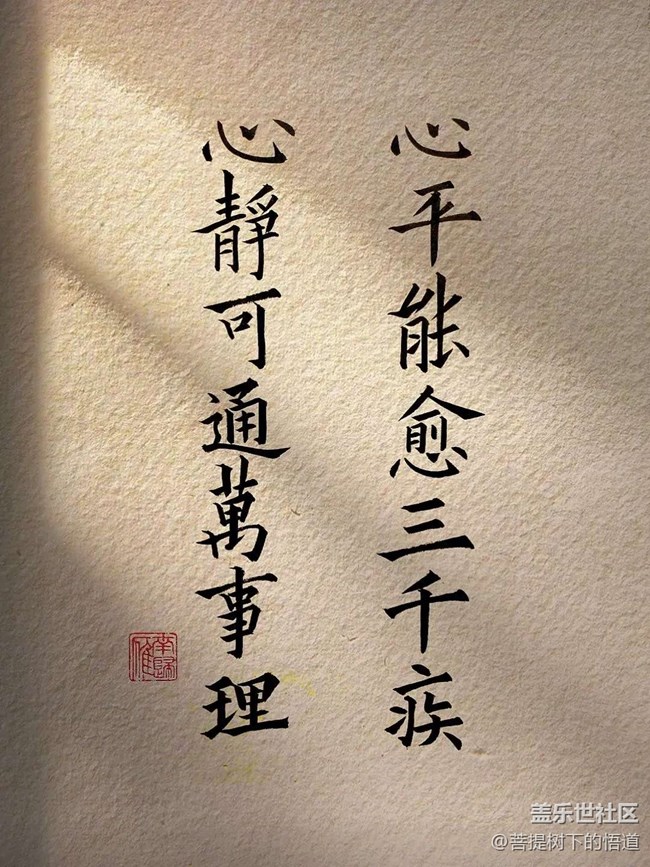 心平能愈三千疾
心靜可通萬事理
南歸雁
盖乐世社区
@菩提树下的悟道